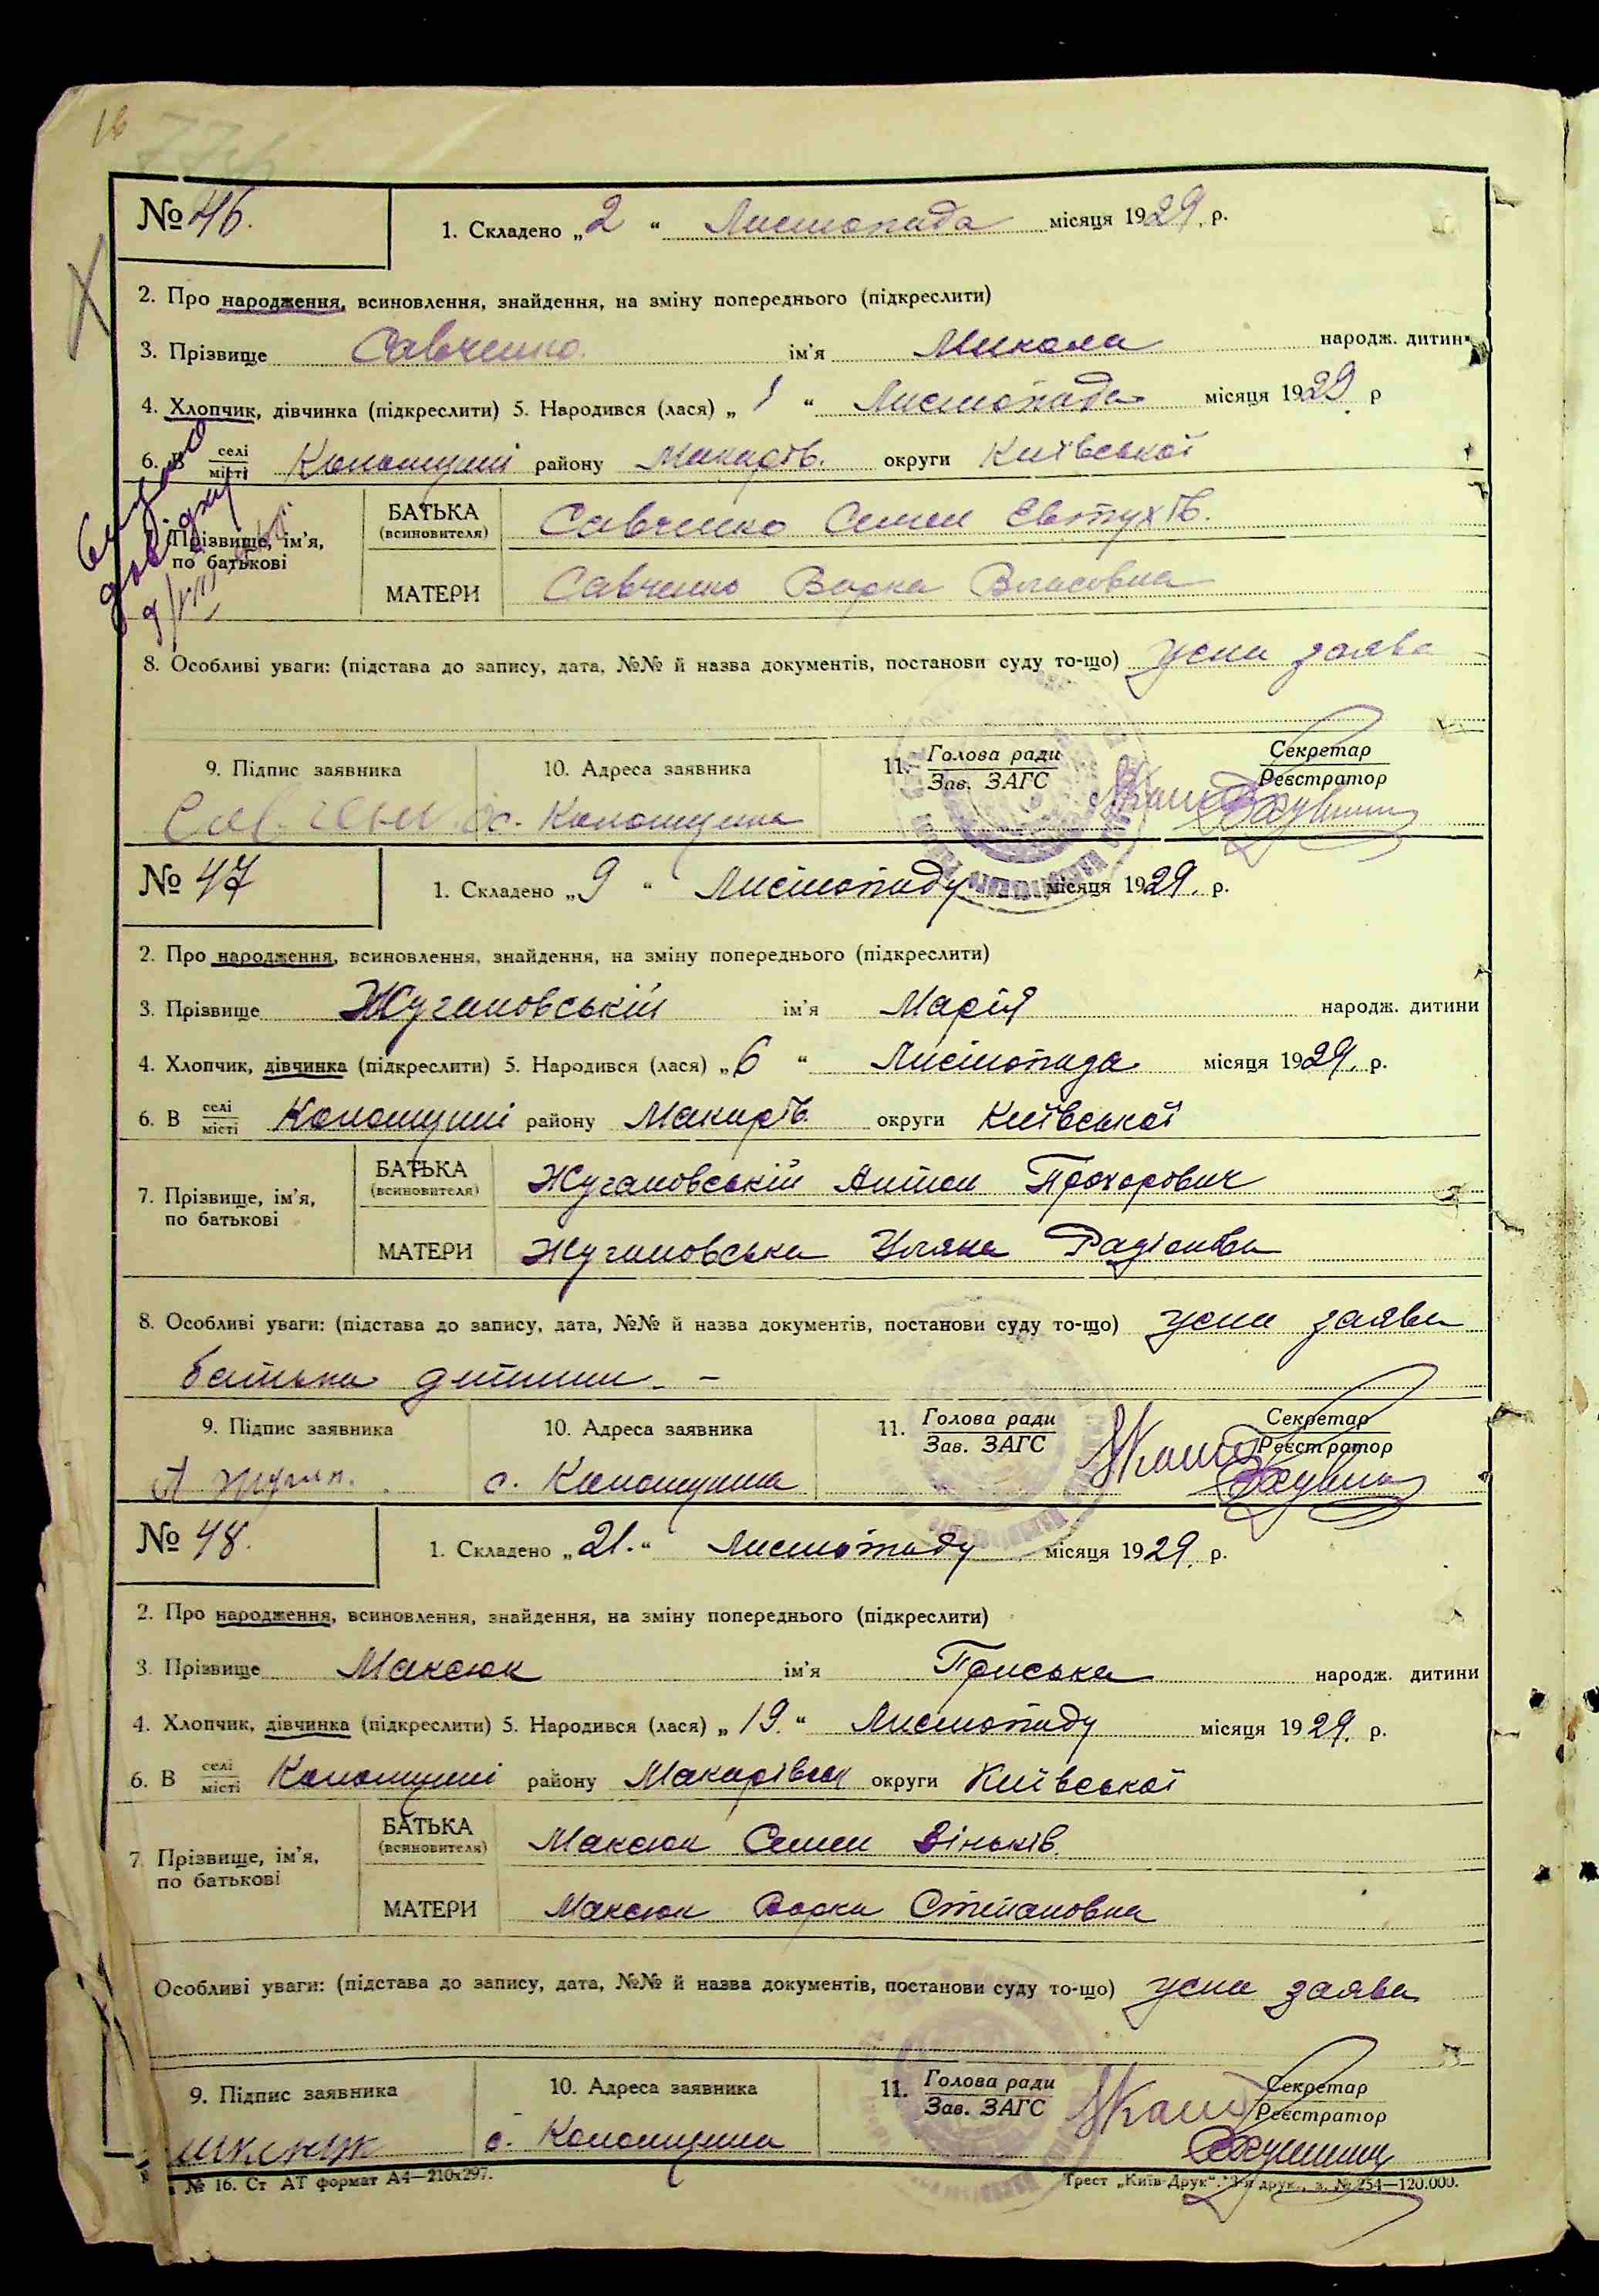 16
№ 46.
1. Складено „2“ Листопада місяця 1929. р.
2. Про народження, всиновлення, знайдення, на зміну попереднього (підкреслити)
3. Прізвище Савченко. ім'я Микола народж. дитин
4. Хлопчик, дівчинка (підкреслити) 5. Народився (лася) „1“ Листопада місяця 1929 р
6. В селі місті Колонщині району Макарів. округи Київської
Прізвище, ім'я, по батькові
БАТЬКА (всиновителя) Савченко Семен Евтухів.
МАТЕРИ Савченко Варка Власовна
видано довідку
8. Особливі уваги: (підстава до запису, дата, №№ й назва документів, постанови суду то-що) усна заява
9. Підпис заявника 10. Адреса заявника 11. Голова ради Зав. ЗАГС Секретар Реєстратор
с. Колонщина
№ 47
1. Складено „9“ Листопаду місяця 1929. р.
2. Про народження, всиновлення, знайдення, на зміну попереднього (підкреслити)
3. Прізвище Жугановській ім'я Марія народж. дитини
4. Хлопчик, дівчинка (підкреслити) 5. Народився (лася) „6“ Листопада місяця 1929. р.
6. В селі місті Колонщині району Макарів. округи Київської
7. Прізвище, ім'я, по батькові
БАТЬКА (всиновителя) Жугановській Антон Прохорович
МАТЕРИ Жугановська Уляна Радіонівна
8. Особливі уваги: (підстава до запису, дата, №№ й назва документів, постанови суду то-що) усна заява
батька дитини. –
9. Підпис заявника 10. Адреса заявника 11. Голова ради Зав. ЗАГС Секретар Реєстратор
с. Колонщина
№ 48.
1. Складено „21.“ Листопаду місяця 1929. р.
2. Про народження, всиновлення, знайдення, на зміну попереднього (підкреслити)
3. Прізвище Максюк ім'я Приська народж. дитини
4. Хлопчик, дівчинка (підкреслити) 5. Народився (лася) „19.“ Листопаду місяця 1929. р.
6. В селі місті Колонщині району Макарівськ округи Київської
7. Прізвище, ім'я, по батькові
БАТЬКА (всиновителя) Максюк Семен Зіньків.
МАТЕРИ Максюк Варка Степановна
Особливі уваги: (підстава до запису, дата, №№ й назва документів, постанови суду то-що) усна заява
9. Підпис заявника 10. Адреса заявника 11. Голова ради Зав. ЗАГС Секретар Реєстратор
с. Колонщина
№ 16. Ст АТ формат А4—210x297. Трест „Київ-Друк“. 3-я друк., з. № 254—120.000.